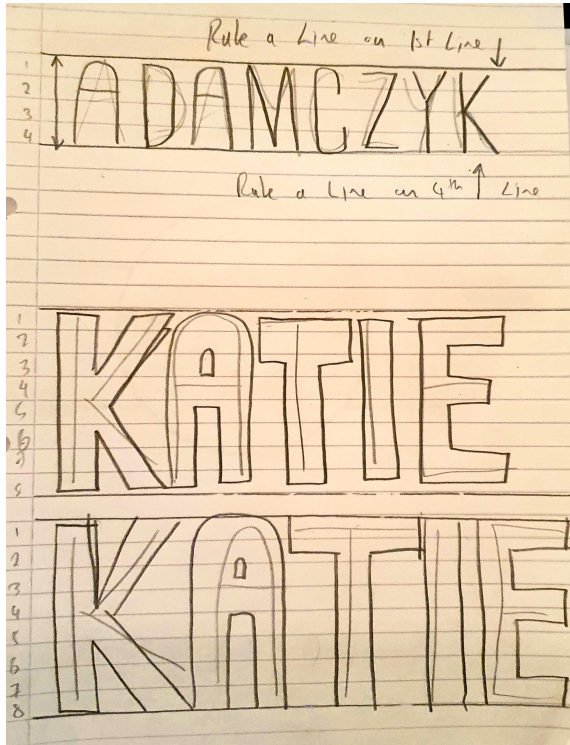 Rule a Line on 1st Line
1
2
3
4
ADAMCZYK
Rule a Line on 4th Line
1
2
3
4
5
6
7
8
KATIE
1
2
3
4
5
6
7
8
KATIE